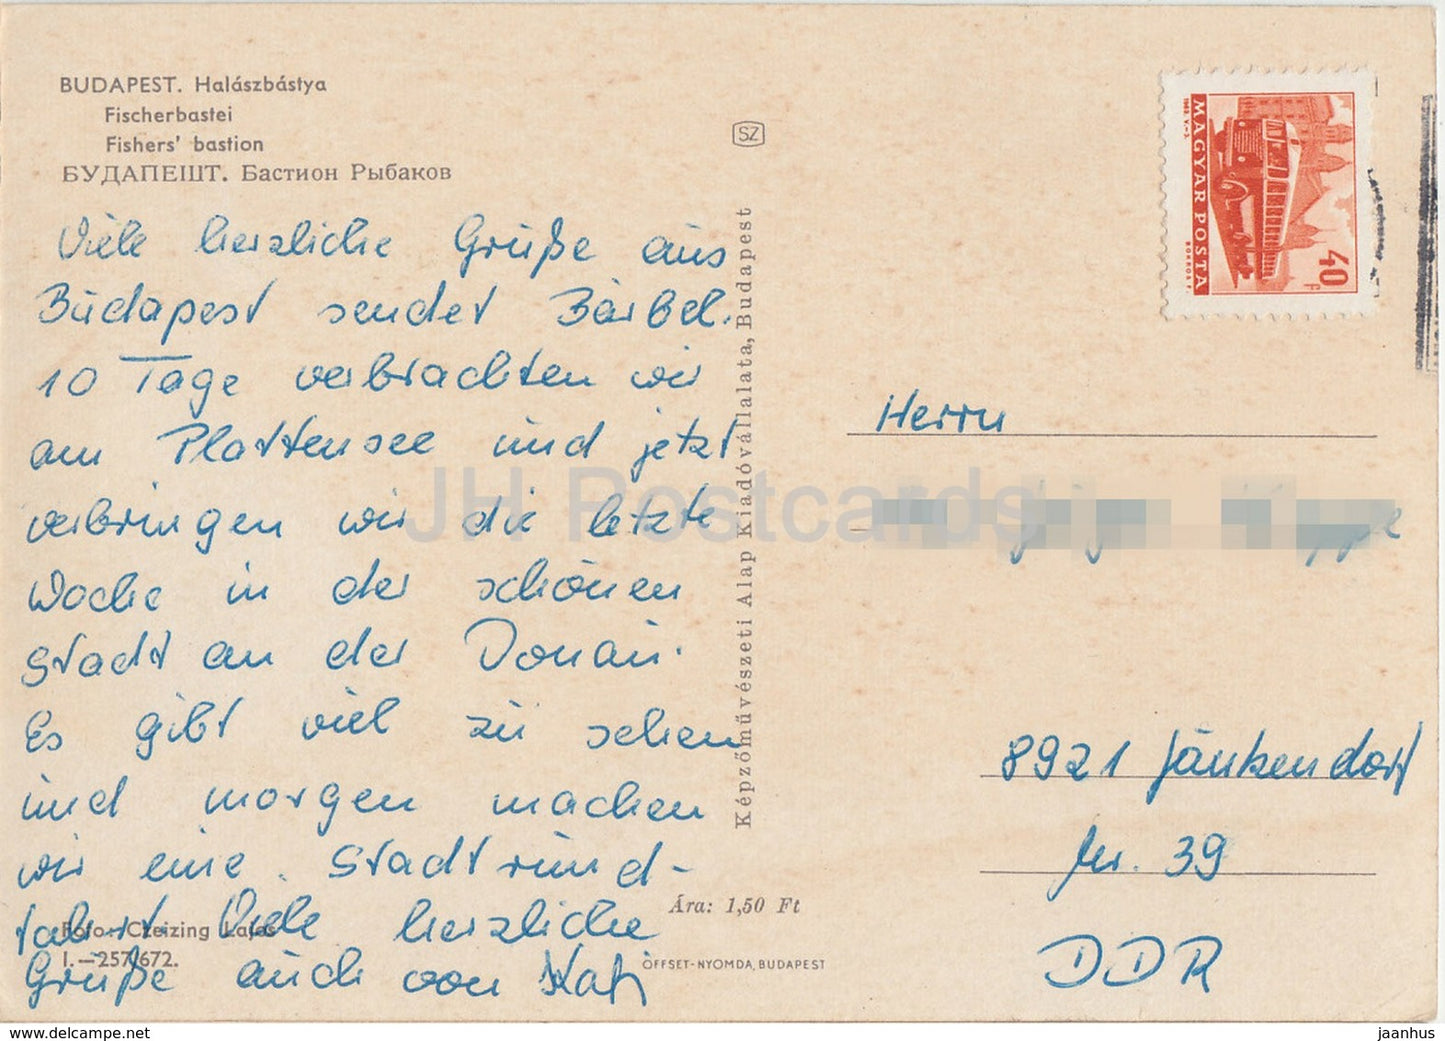 BUDAPEST. Halászbástya
Fischerbastei
Fishers' bastion
БУДАПЕШТ. Бастион Рыбаков
Viele herzliche Grüße aus
Budapest sendet Bärbel.
10 Tage verbrachten wir
am Plattensee und jetzt
verbringen wir die letzte
Woche in der schönen
Stadt an der Donau.
Es gibt viel zu sehen
und morgen machen
wir eine Stadtrund-
fahrt. Viele herzliche
Grüße auch von Kati
Foto: Czeizing Lajos
I.—257/672.
SZ
Képzőművészeti Alap Kiadóvállalata, Budapest
Ára: 1,50 Ft
OFFSET-NYOMDA, BUDAPEST
MAGYAR POSTA
40 f
Herrn
8921 Jänkendorf
Nr. 39
DDR
JH Postcards
www.delcampe.net
jaanhus